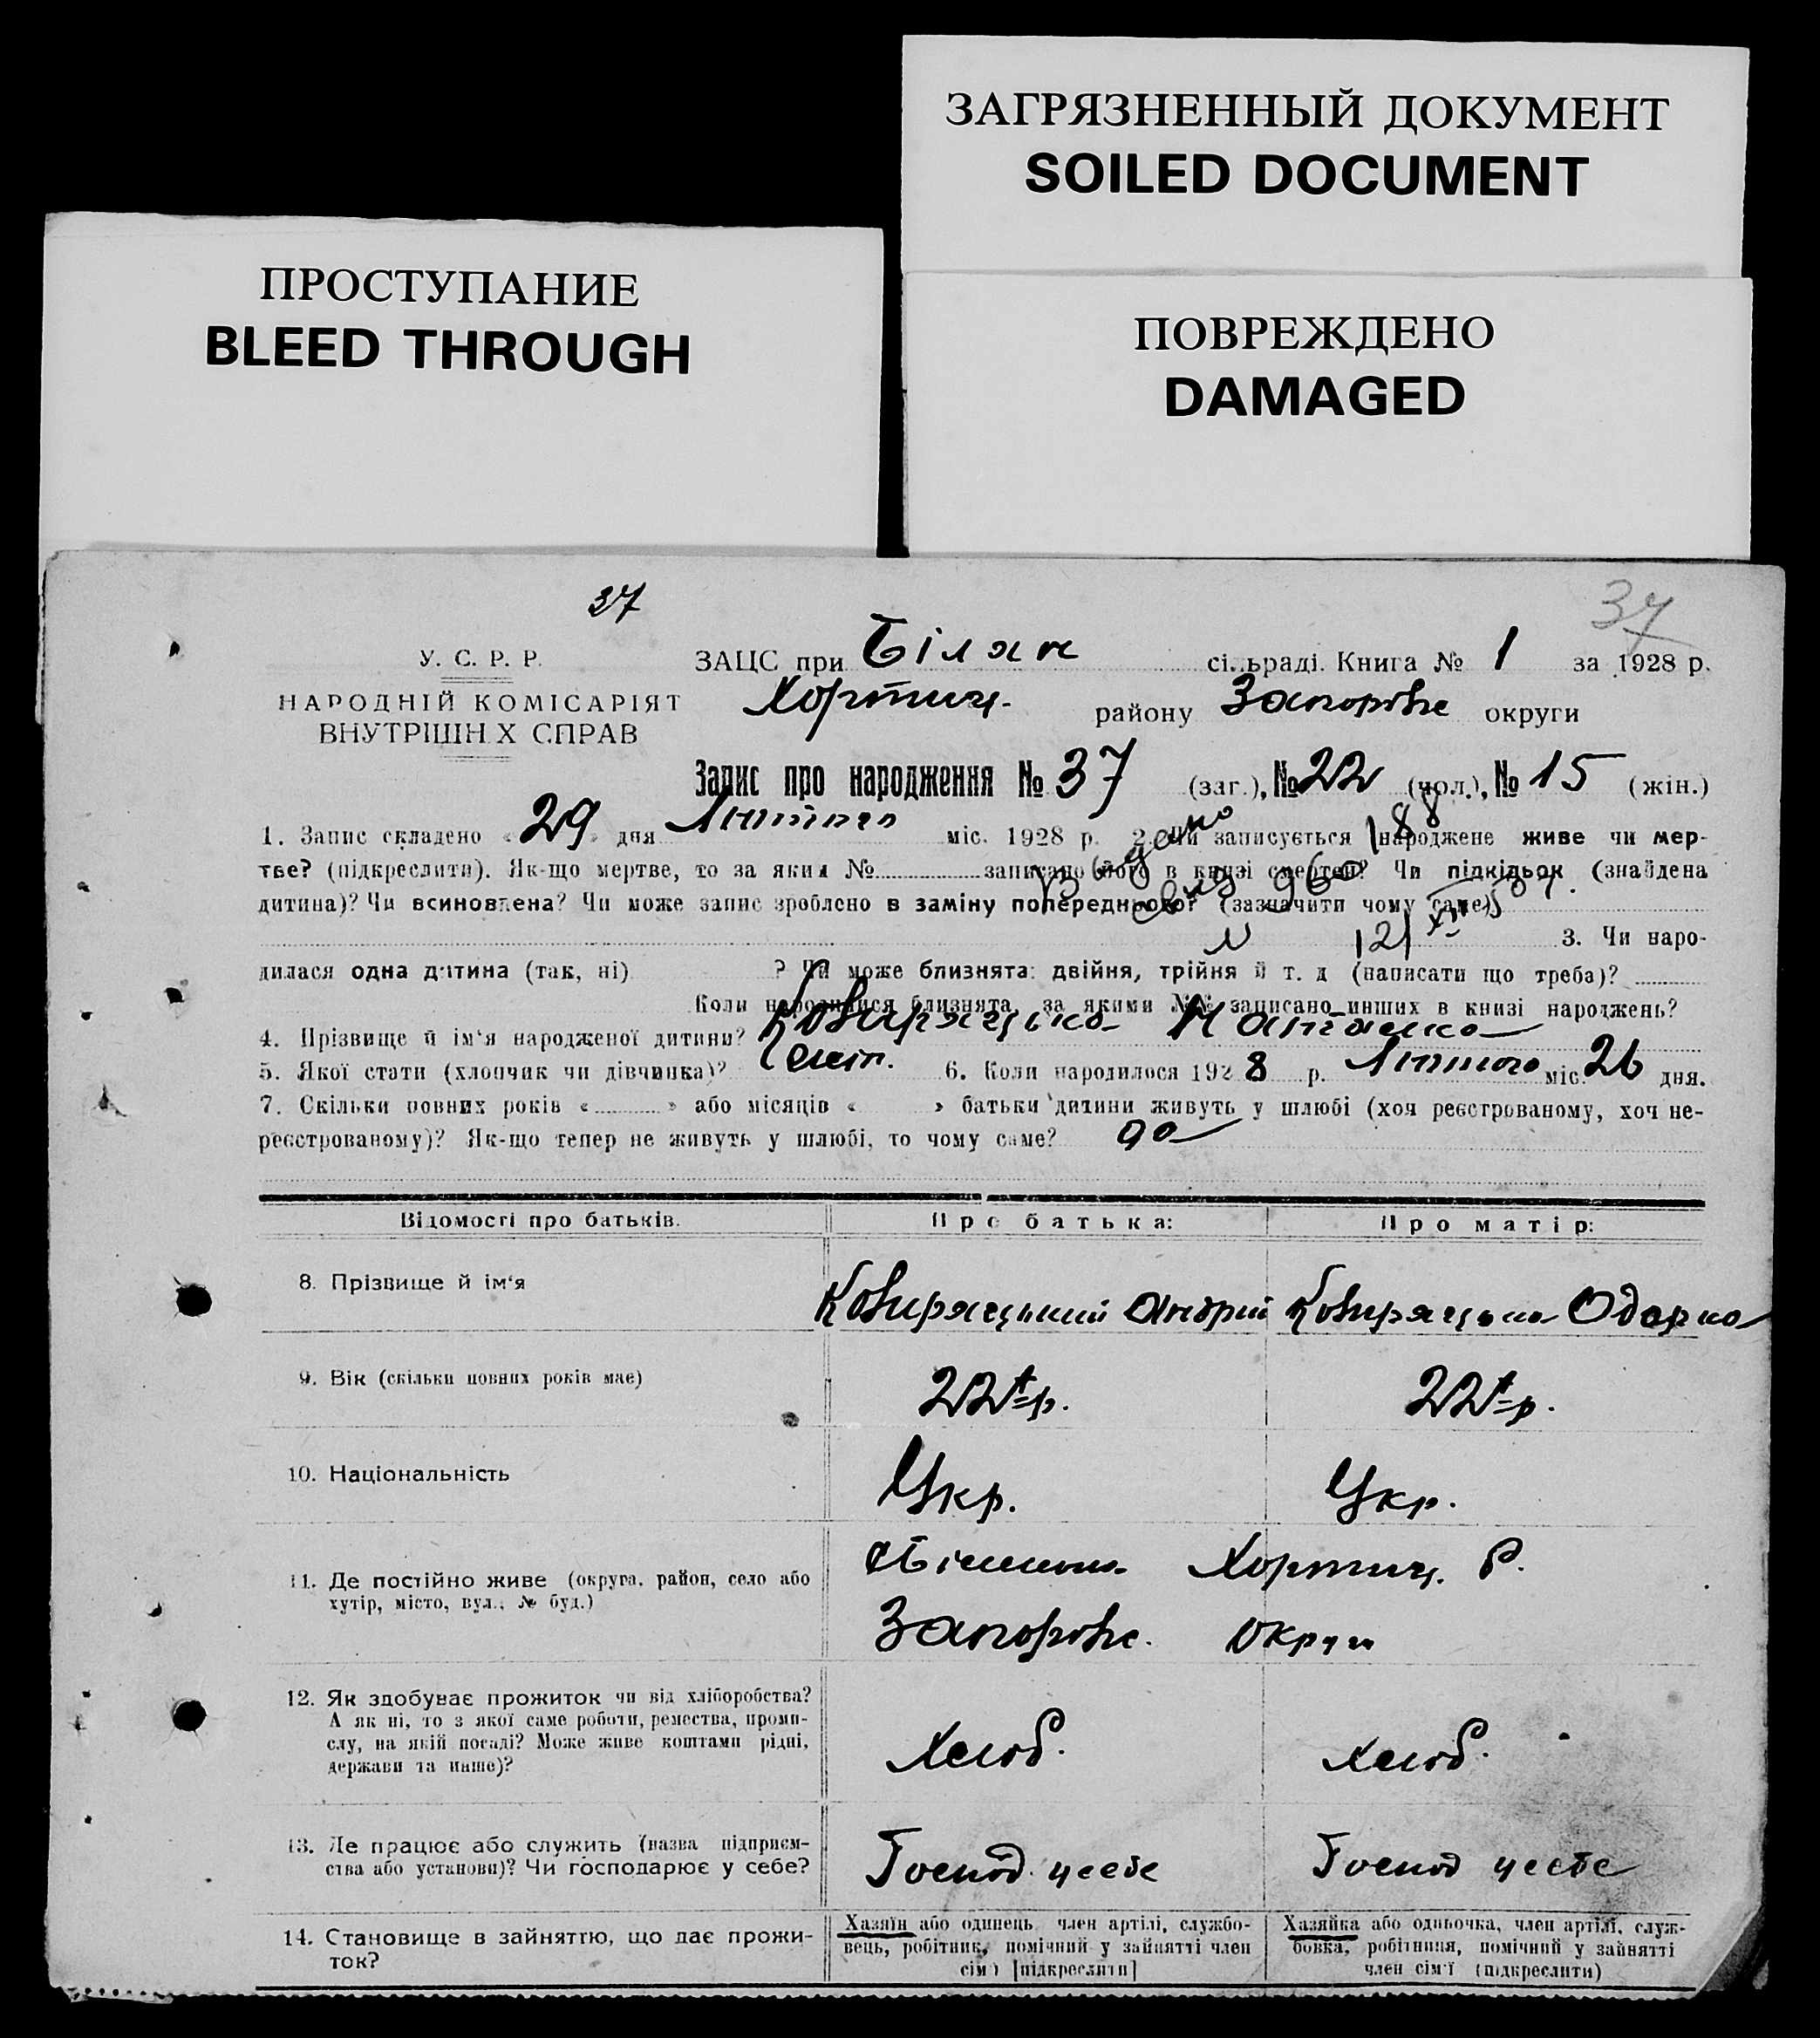 ЗАГРЯЗНЕННЫЙ ДОКУМЕНТ
SOILED DOCUMENT
ПРОСТУПАНИЕ
BLEED THROUGH
ПОВРЕЖДЕНО
DAMAGED
37
37
У. С. Р. Р.
НАРОДНІЙ КОМІСАРІЯТ
ВНУТРІШНІХ СПРАВ
ЗАЦС при Біляк сільраді. Книга № 1 за 1928 р.
Хортиц. району Запорізьк округи
Запис про народження № 37 (заг.), № 22 (чол.), № 15 (жін.)
1. Запис складено « 29 » дня Лютого міс. 1928 р. 2. Чи записується народжене живе чи мер-
тве? (підкреслити). Як-що мертве, то за яким № записано його в книзі смертей? Чи підкідьок (знайдена
дитина)? Чи всиновлена? Чи може запис зроблено в заміну попереднього? (зазначити чому саме)
3. Чи наро-
дилася одна дитина (так, ні) ? Чи може близнята: двійня, трійня й т. д (написати що треба)?
Коли народилися близнята, за якими №№ записано инших в книзі народжень?
4. Прізвище й ім'я народженої дитини? Ковиряцька Наталка
5. Якої стати (хлопчик чи дівчинка)? 6. Коли народилося 1928 р. Лютого міс. 26 дня.
7. Скільки повних років « » або місяців « » батьки дитини живуть у шлюбі (хоч реєстрованому, хоч не-
реєстрованому)? Як-що тепер не живуть у шлюбі, то чому саме?
Відомості про батьків.
Про батька:
Про матір:
8. Прізвище й ім'я
Ковиряцький Андрій
Ковиряцька Одарка
9. Вік (скільки повних років має)
22 р.
22 р.
10. Національність
Укр.
Укр.
11. Де постійно живе (округа, район, село або
хутір, місто, вул., № буд.)
Хортиц. Р.
Запорізьк. округи
12. Як здобуває прожиток чи від хліборобства?
А як ні, то з якої саме роботи, ремества, проми-
слу, на якій посаді? Може живе коштами рідні,
держави та инше)?
Хліб.
Хліб.
13. Де працює або служить (назва підприєм-
ства або установи)? Чи господарює у себе?
Господ. у себе
Господ у себе
14. Становище в зайняттю, що дає прожи-
ток?
Хазяїн або одинець, член артілі, службо-
вець, робітник, помічний у зайнятті член
сім'ї [підкреслити]
Хазяйка або одиночка, член артілі, служ-
бовка, робітниця, помічний у зайнятті
член сім'ї (підкреслити)